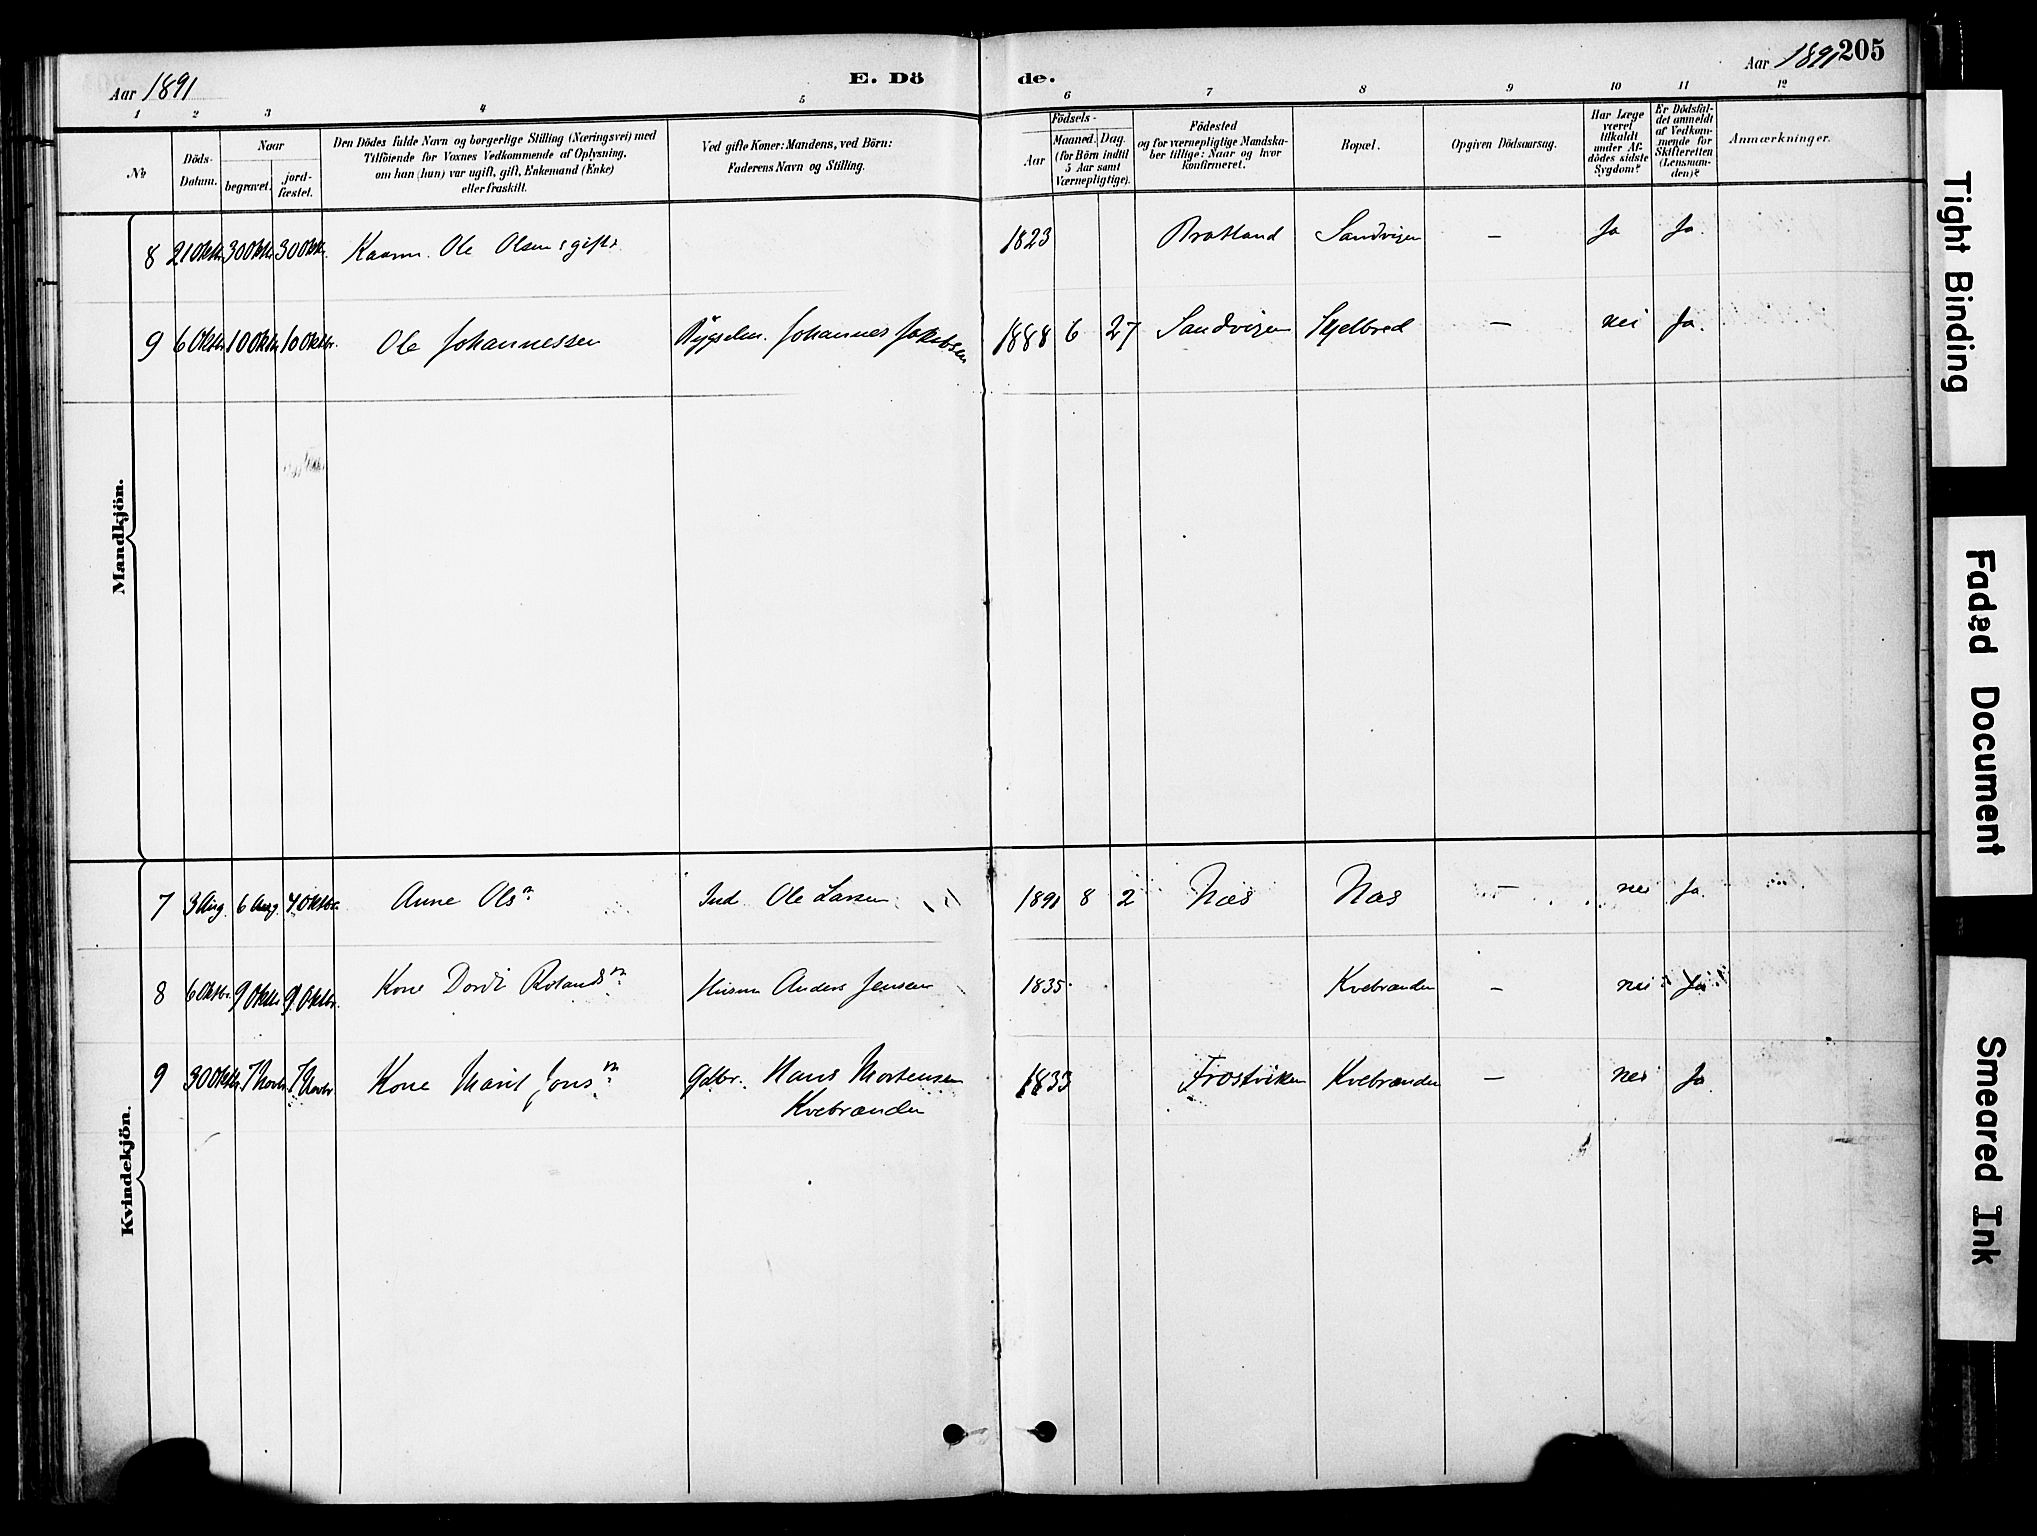 Aar 1891
E. Dö
de.
Aar 1891 205
1 2 3 4 5 6 7 8 9 10 11 12
No
Döds-
Datum.
Naar
begravet.
jord-
fæstet.
Den Dödes fulde Navn og borgerlige Stilling (Næringsvei) med
Tilföiende for Voxnes Vedkommende af Oplysning,
om han (hun) var ugift, gift, Enkemand (Enke)
eller fraskilt.
Ved gifte Koner: Mandens, ved Börn:
Faderens Navn og Stilling.
Födsels-
Aar
Maaned. Dag.
(for Börn indtil
5 Aar samt
Værnepligtige).
Födested
og for værnepligtige Mandska-
ber tillige: Naar og hvor
konfirmeret.
Bopæl.
Opgiven Dödsaarsag.
Har Læge
været
tilkaldt
under Af-
dödes sidste
Sygdom?
Er Dödsfal-
det anmeldt
af Vedkom-
mende for
Skifteretten
(Lensman-
den)?
Anmærkninger.
Mandkjön.
8 2 Oktbr. 30 Oktbr. 30 Oktbr. Kaarm. Ole Olsen, gift. 1823 Bratland Sandvigen — Ja Ja.
9 6 Oktbr. 10 Oktbr. 10 Oktbr. Ole Johannessen Bygselm. Johannes Jakobsen 1888 6 27 Sandvigen Skjelbred — nei Ja.
Kvindekjön.
7 3 Aug. 6 Aug. 4 Oktbr. Anne Olsn Ind. Ole Larsen 1891 8 2 Næs Næs — nei Ja.
8 6 Oktbr. 9 Oktbr. 9 Oktbr. Kone Dordi Rolandsn Husm Anders Jensen 1835 Kvebranden — nei Ja
9 30 Oktbr. 7 Novbr. 7 Novbr Kone Marit Jonsn Gdbr. Hans Mortensen
Kvebranden
1833 Frostviken Kvebranden — nei Ja.
Tight Binding
Faded Document
Smeared Ink